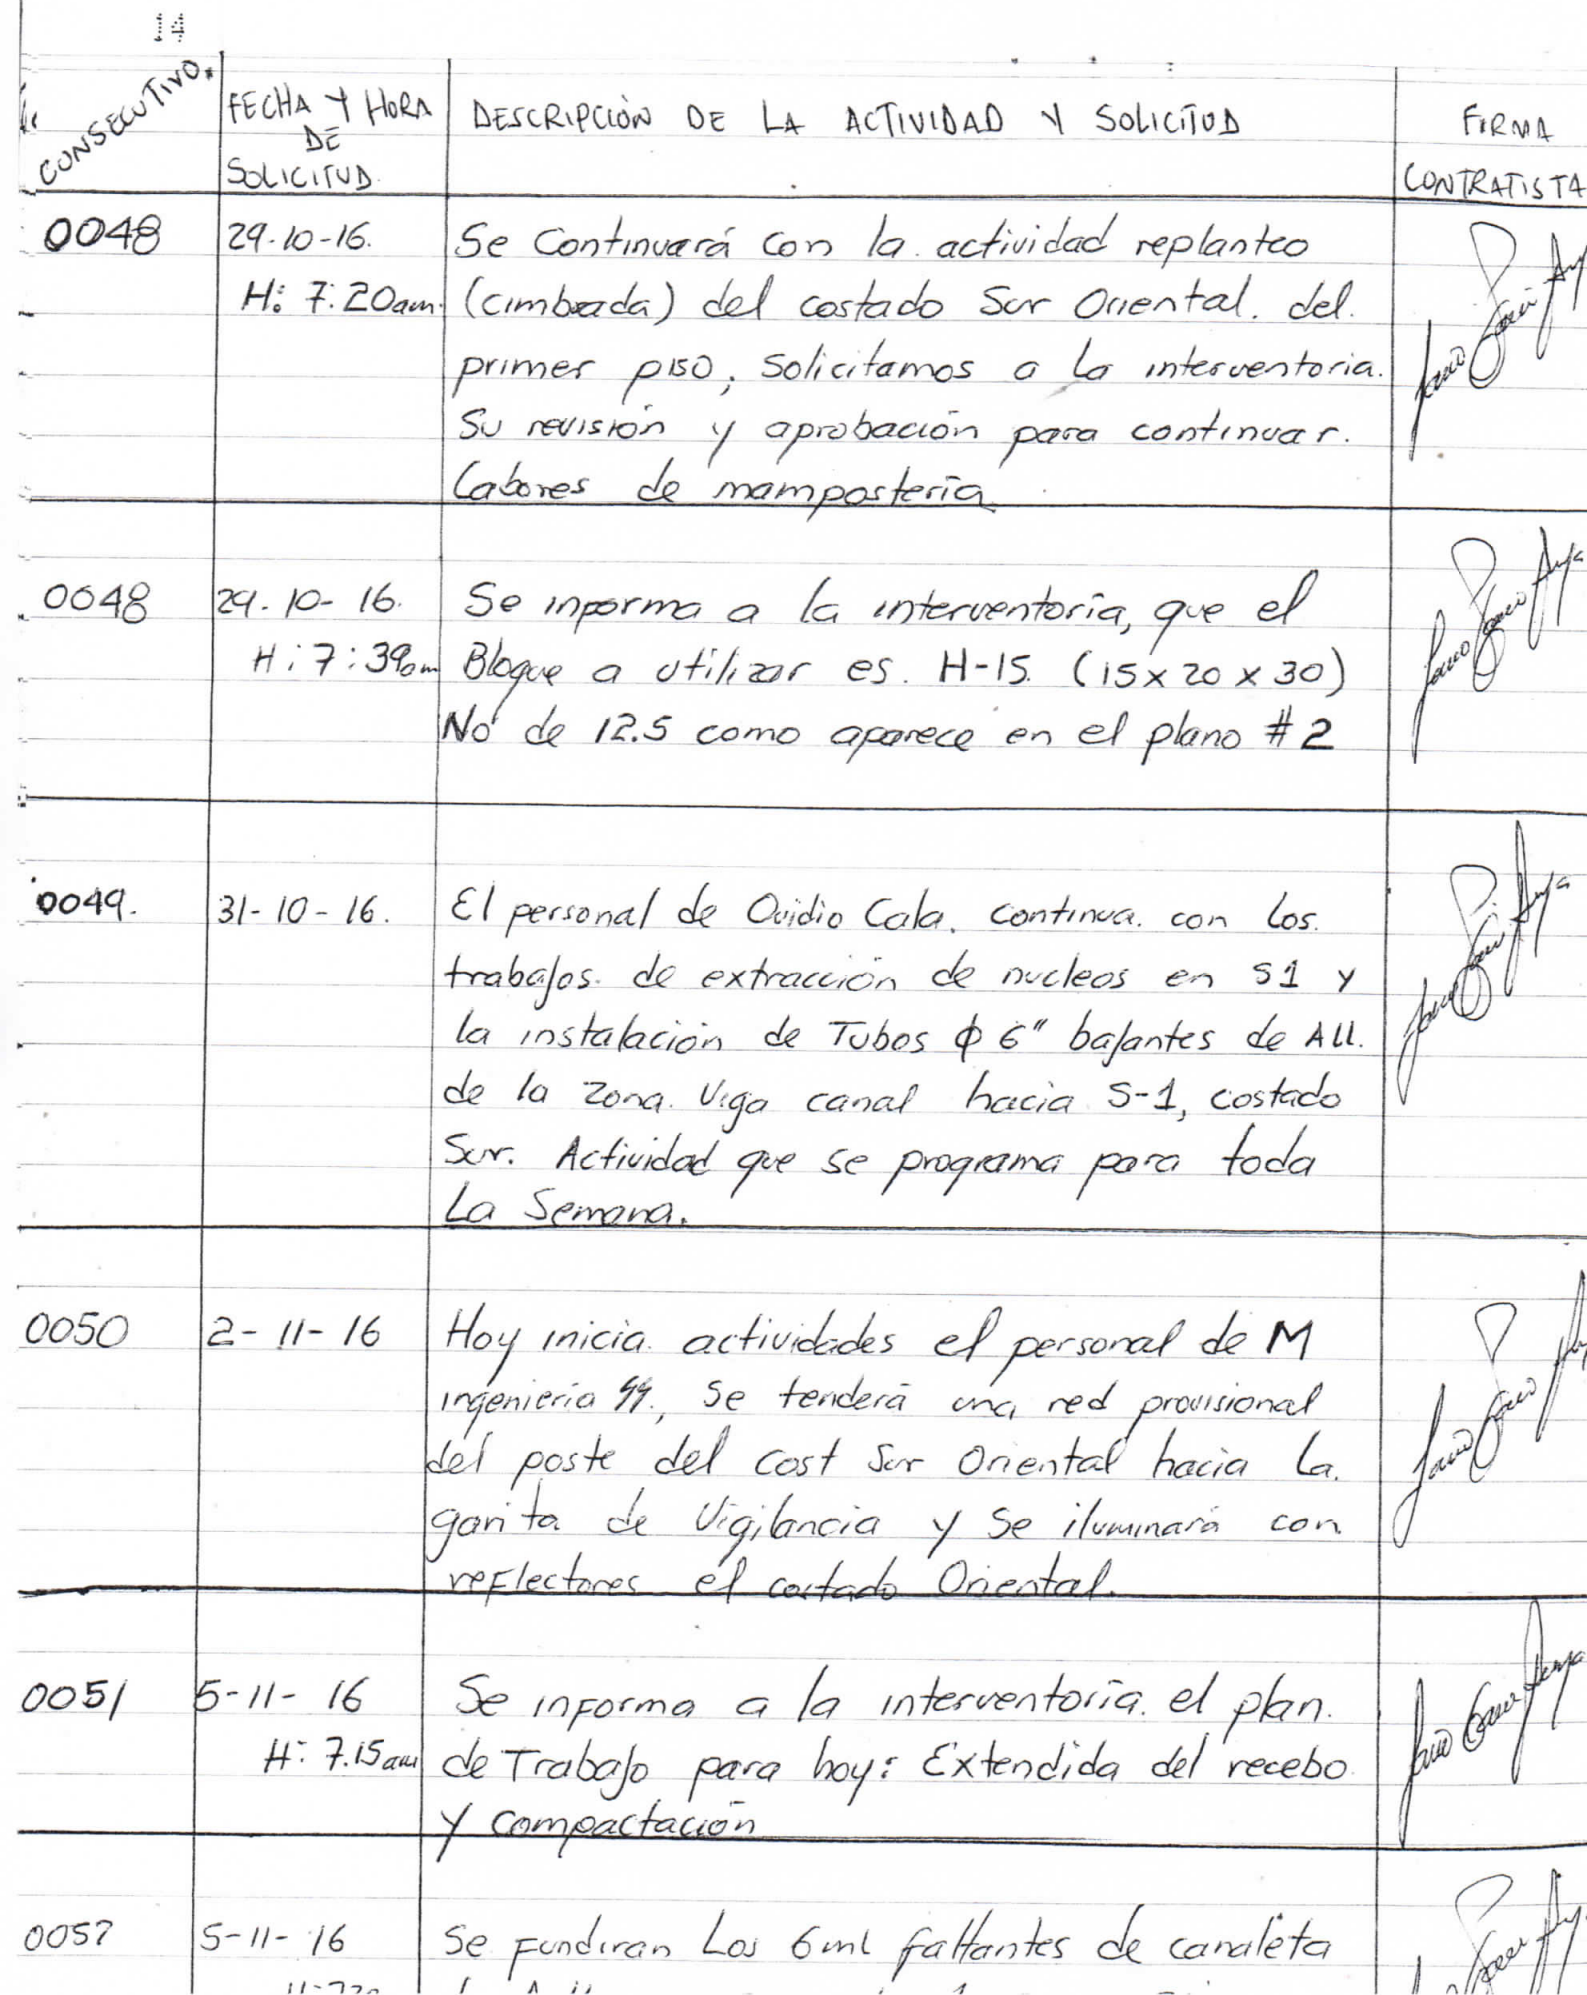 14
CONSECUTIVO.
FECHA Y HORA
DE
SOLICITUD.
DESCRIPCIÓN DE LA ACTIVIDAD Y SOLICITUD
FIRMA
CONTRATISTA
0048
29-10-16.
H: 7:20am.
Se Continuará con la actividad replanteo
(cimbrada) del costado Sur Oriental. del.
primer piso, solicitamos a la interventoria.
Su revisión y aprobación para continuar.
labores de mampostería
0048
29-10-16.
H: 7:39am
Se informa a la interventoría, que el
Bloque a utilizar es. H-15. (15x20x30)
No de 12.5 como aparece en el plano #2
0049.
31-10-16.
El personal de Ovidio Cala. continua. con los.
trabajos. de extracción de nucleos en S1 y
la instalación de Tubos ϕ 6" bajantes de All.
de la zona. Viga canal hacia S-1, costado
Sur. Actividad que se programa para toda
La Semana.
0050
2-11-16
Hoy inicia. actividades el personal de M
ingeniería, se tenderá una red provisional
del poste del cost Sur Oriental hacia la.
garita de Vigilancia y se iluminará con
reflectores el costado Oriental.
0051
5-11-16
H: 7.15am
Se informa a la interventoría. el plan.
de Trabajo para hoy: Extendida del recebo.
y compactación
5-11-16
Se fundiran Los 6ml faltantes de canaleta